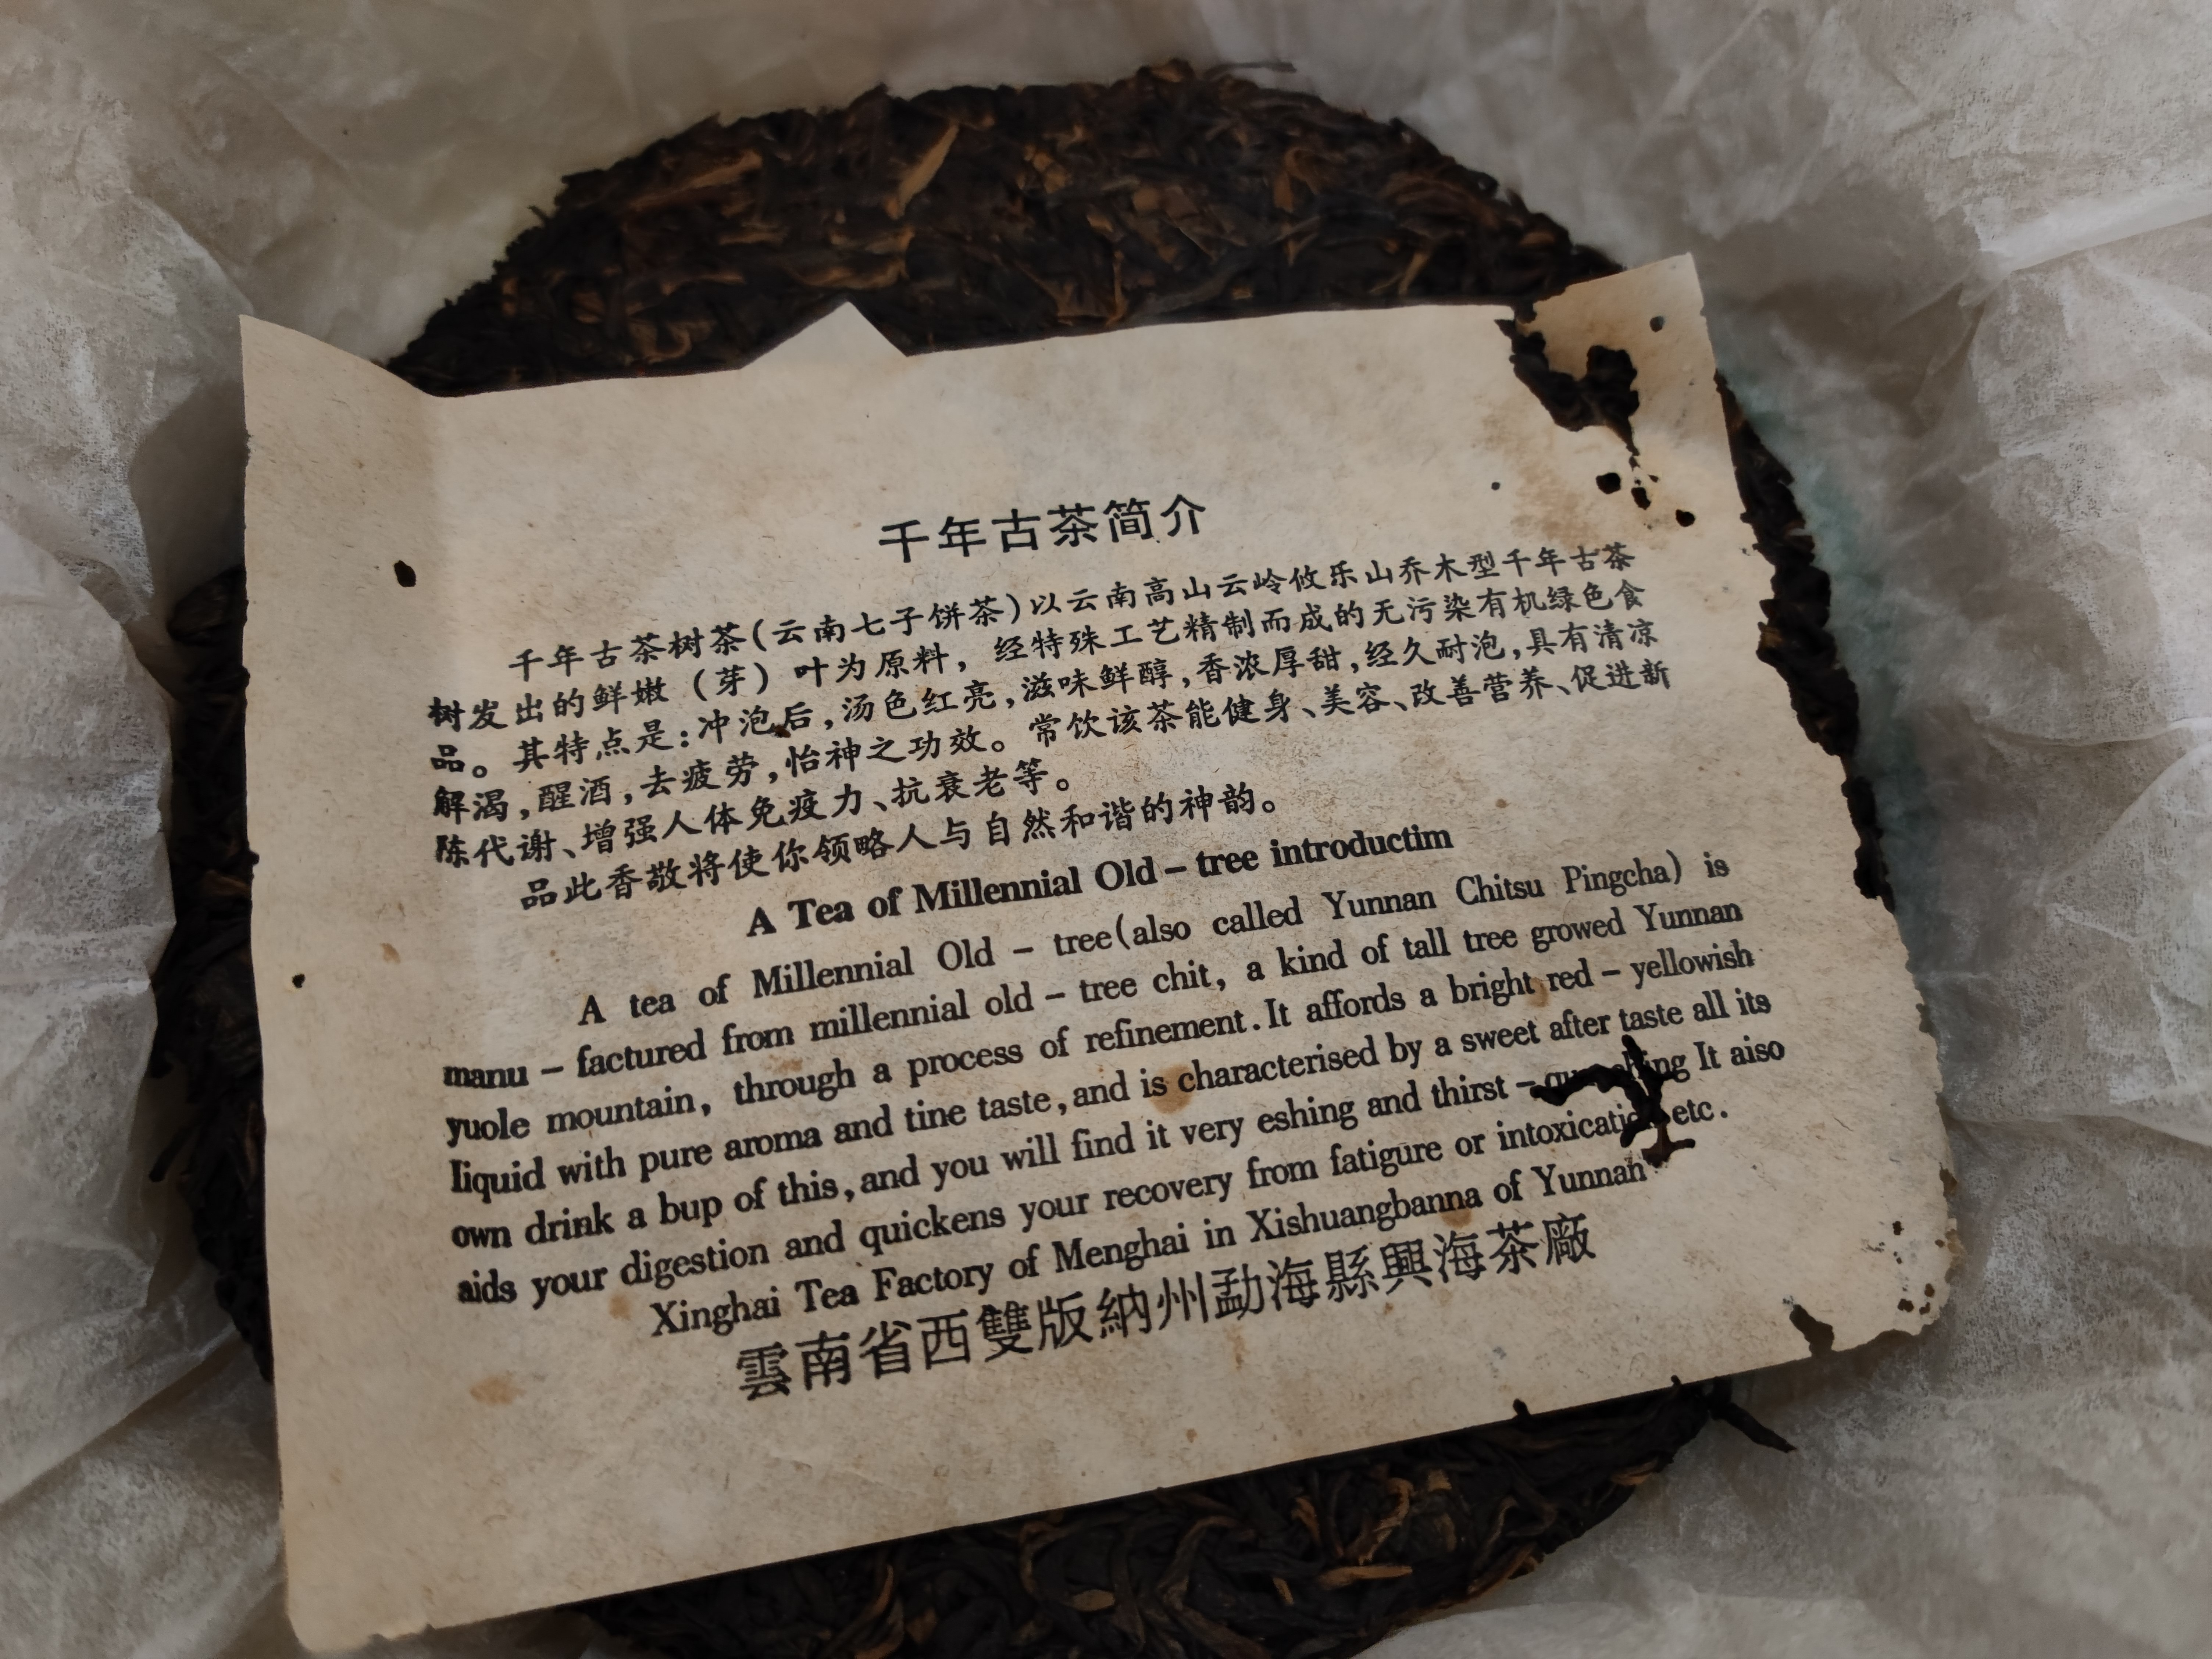 千年古茶简介
千年古茶树茶(云南七子饼茶)以云南高山云岭攸乐山乔木型千年古茶
树发出的鲜嫩（芽）叶为原料，经特殊工艺精制而成的无污染有机绿色食
品。其特点是:冲泡后,汤色红亮,滋味鲜醇,香浓厚甜,经久耐泡,具有清凉
解渴,醒酒,去疲劳,怡神之功效。常饮该茶能健身、美容、改善营养、促进新
陈代谢、增强人体免疫力、抗衰老等。
品此香敬将使你领略人与自然和谐的神韵。
A Tea of Millennial Old – tree introductim
A tea of Millennial Old – tree(also called Yunnan Chitsu Pingcha) is
manu – factured from millennial old – tree chit, a kind of tall tree growed Yunnan
yuole mountain, through a process of refinement. It affords a bright red – yellowish
liquid with pure aroma and tine taste, and is characterised by a sweet after taste all its
own drink a bup of this, and you will find it very eshing and thirst – It aiso
aids your digestion and quickens your recovery from fatigure or etc.
Xinghai Tea Factory of Menghai in Xishuangbanna of Yunnan
雲南省西雙版納州勐海縣興海茶廠